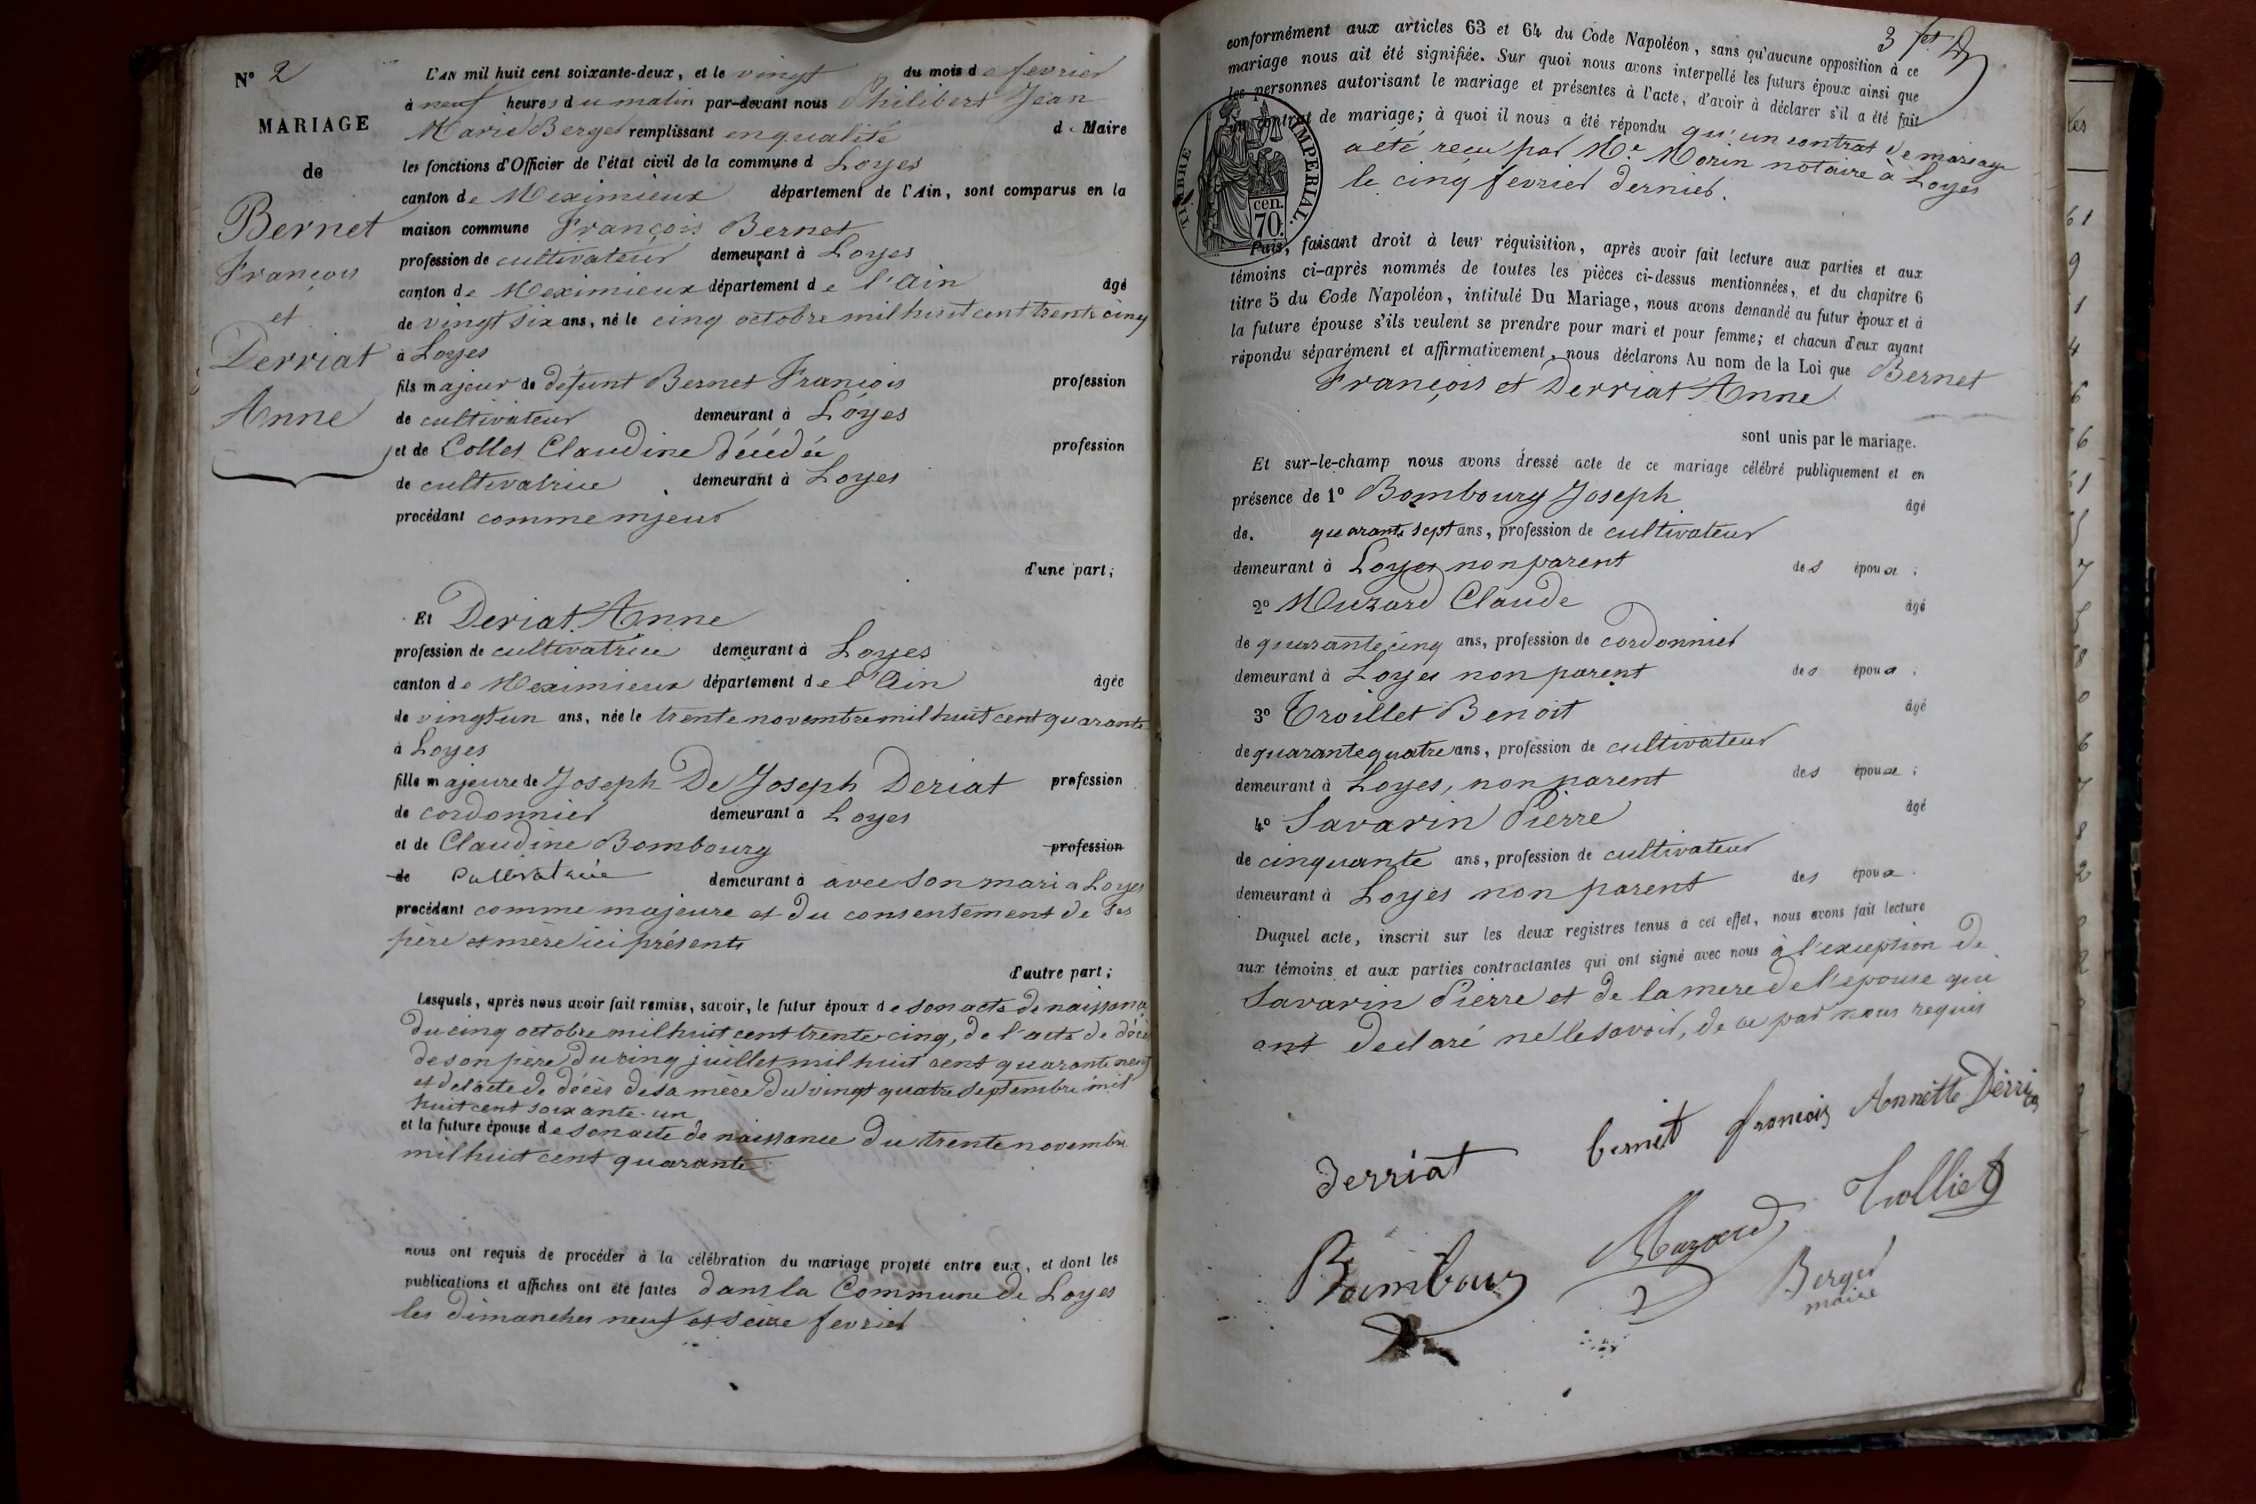 N° 2
MARIAGE
de
Bernet
François
et
Derriat
Anne
L'AN mil huit cent soixante-deux, et le vingt du mois de fevrier
à neuf heures du matin par-devant nous Philibert Jean
Marie Berger remplissant en qualité de Maire
les fonctions d'Officier de l'état civil de la commune d Loyes
canton de Meximieux département de l'Ain, sont comparus en la
maison commune François Bernet
profession de cultivateur demeurant à Loyes
canton de Meximieux département de l'Ain âgé
de vingt six ans, né le cinq octobre mil huit cent trente cinq
à Loyes
fils majeur de défunt Bernet François profession
de cultivateur demeurant à Loyes
et de Collet Claudine décédée profession
de cultivatrice demeurant à Loyes
procédant comme mjeur
d'une part;
Et Deriat Anne
profession de cultivatrice demeurant à Loyes
canton de Meximieux département de l'Ain âgée
de vingt un ans, née le trente novembre mil huit cent quarante
à Loyes
fille majeure de Joseph De Joseph Deriat profession
de cordonnier demeurant à Loyes
et de Claudine Bombourg profession
de cultivatrice demeurant à avec son mari a Loyes
procédant comme majeure et du consentement de ses
père et mère ici présents
d'autre part;
Lesquels, après nous avoir fait remise, savoir, le futur époux de son acte de naissance
du cinq octobre mil huit cent trente-cinq, de l'acte de décès
de son père du cinq juillet mil huit cent quarante neuf
et de l'acte de décès de sa mère du vingt quatre septembre mil
huit cent soixante-un
et la future épouse de son acte de naissance du trente novembre
mil huit cent quarante
nous ont requis de procéder à la célébration du mariage projeté entre eux, et dont les
publications et affiches ont été faites dans la Commune de Loyes
les dimanches neuf et seize fevrier
3
conformément aux articles 63 et 64 du Code Napoléon, sans qu'aucune opposition à ce
mariage nous ait été signifiée. Sur quoi nous avons interpellé les futurs époux ainsi que
les personnes autorisant le mariage et présentes à l'acte, d'avoir à déclarer s'il a été fait
un contrat de mariage; à quoi il nous a été répondu qu'un contrat de mariage
a été reçu par Me Morin notaire à Loyes
le cinq fevrier dernier.
TIMBRE IMPERIAL.
cen.
70.
Puis, faisant droit à leur réquisition, après avoir fait lecture aux parties et aux
témoins ci-après nommés de toutes les pièces ci-dessus mentionnées, et du chapitre 6
titre 5 du Code Napoléon, intitulé Du Mariage, nous avons demandé au futur époux et à
la future épouse s'ils veulent se prendre pour mari et pour femme; et chacun d'eux ayant
répondu séparément et affirmativement, nous déclarons Au nom de la Loi que Bernet
François et Derriat Anne
sont unis par le mariage.
Et sur-le-champ nous avons dressé acte de ce mariage célébré publiquement et en
présence de 1° Bombourg Joseph âgé
de quarante sept ans, profession de cultivateur
demeurant à Loyes non parent des époux;
2° Muzard Claude âgé
de quarante cinq ans, profession de cordonnier
demeurant à Loyes non parent des époux;
3° Trolliet Benoit âgé
de quarante quatre ans, profession de cultivateur
demeurant à Loyes, non parent des époux;
4° Savarin Pierre âgé
de cinquante ans, profession de cultivateur
demeurant à Loyes non parent des époux.
Duquel acte, inscrit sur les deux registres tenus à cet effet, nous avons fait lecture
aux témoins et aux parties contractantes qui ont signé avec nous à l'exception de
Savarin Pierre et de la mere de l'epouse qui
ont declaré ne le savoir, de ce par nous requis
derriat bernet francois Annette Derriat
Bambour Mazard Trolliet
Berger
maire